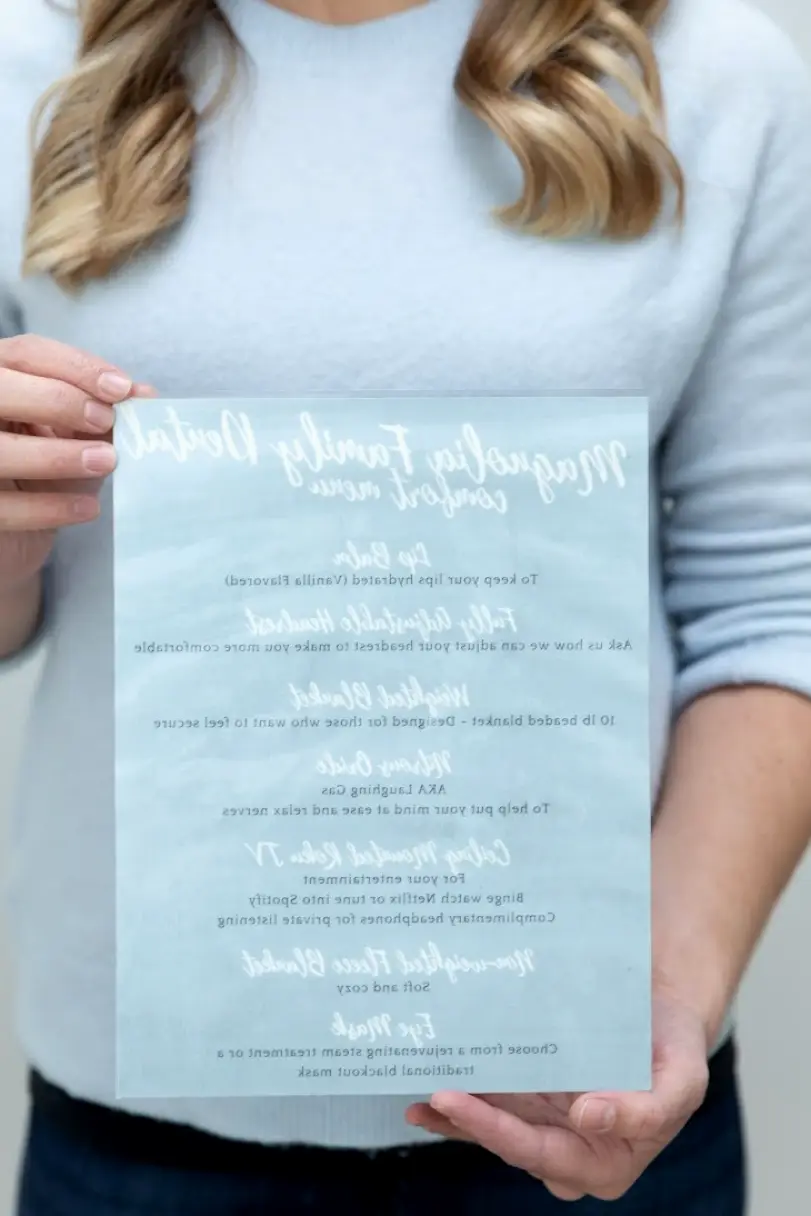 Magnolia Family Dental
comfort menu
Lip Balm
To keep your lips hydrated (Vanilla Flavored)
Fully Adjustable Headrest
Ask us how we can adjust your headrest to make you more comfortable
Weighted Blanket
10 lb beaded blanket - Designed for those who want to feel secure
Nitrous Oxide
AKA Laughing Gas
To help put your mind at ease and relax nerves
Ceiling Mounted Roku TV
For your entertainment
Binge watch Netflix or tune into Spotify
Complimentary headphones for private listening
Non-weighted Fleece Blanket
Soft and cozy
Eye Mask
Choose from a rejuvenating steam treatment or a
traditional blackout mask